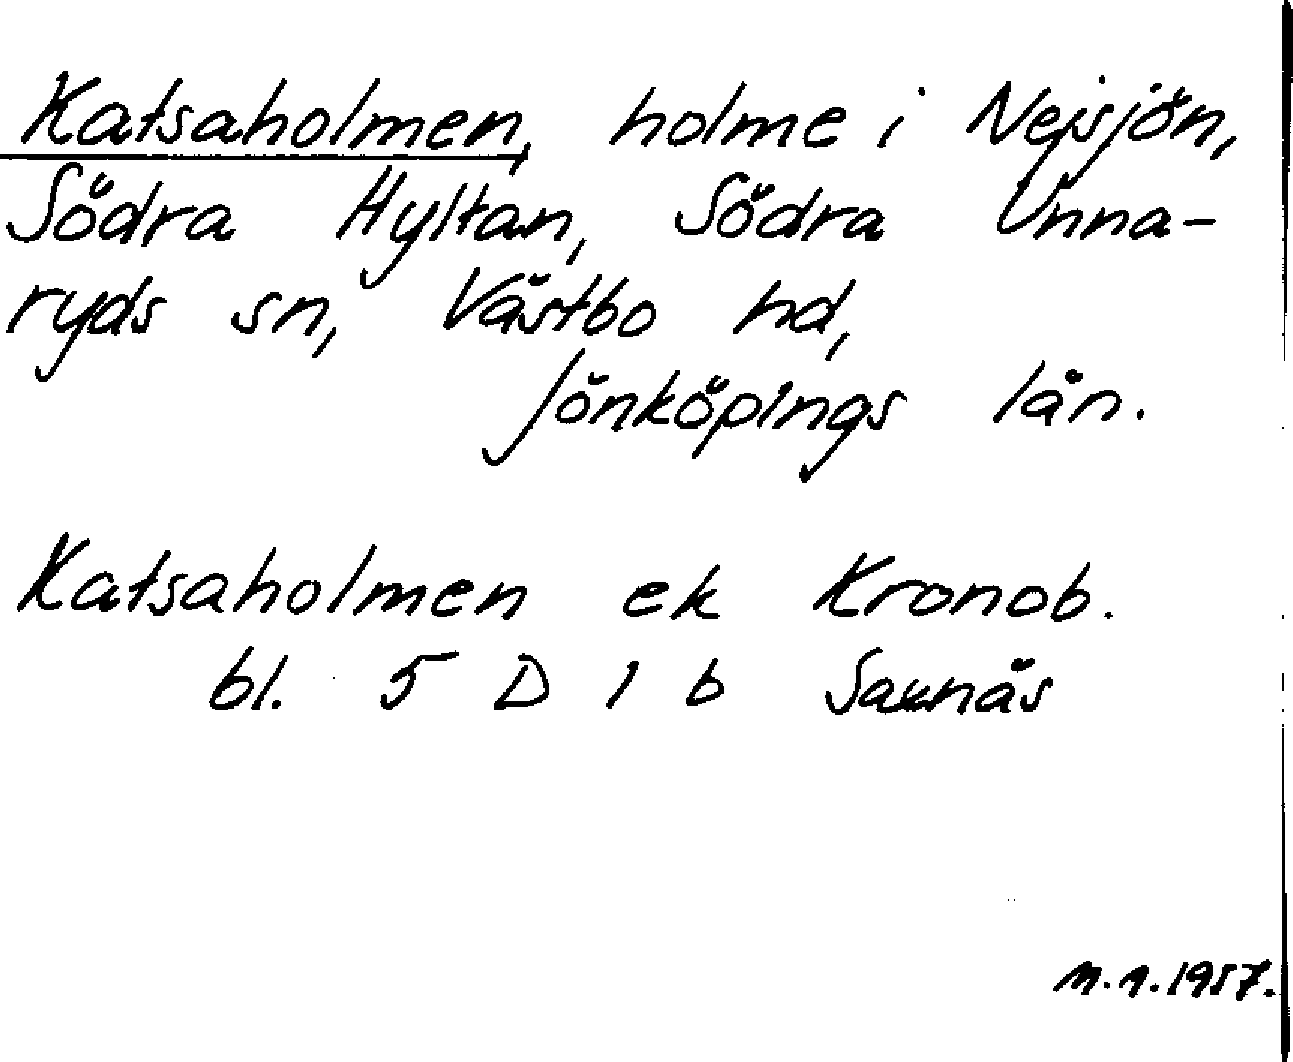 Katsaholmen, holme i Nejsjön,
Södra Hyltan, Södra Unna-
ryds sn, Västbo hd,
Jönköpings län.
Katsaholmen ek Kronob.
bl. 5 D 1 b Saunäs
1957.